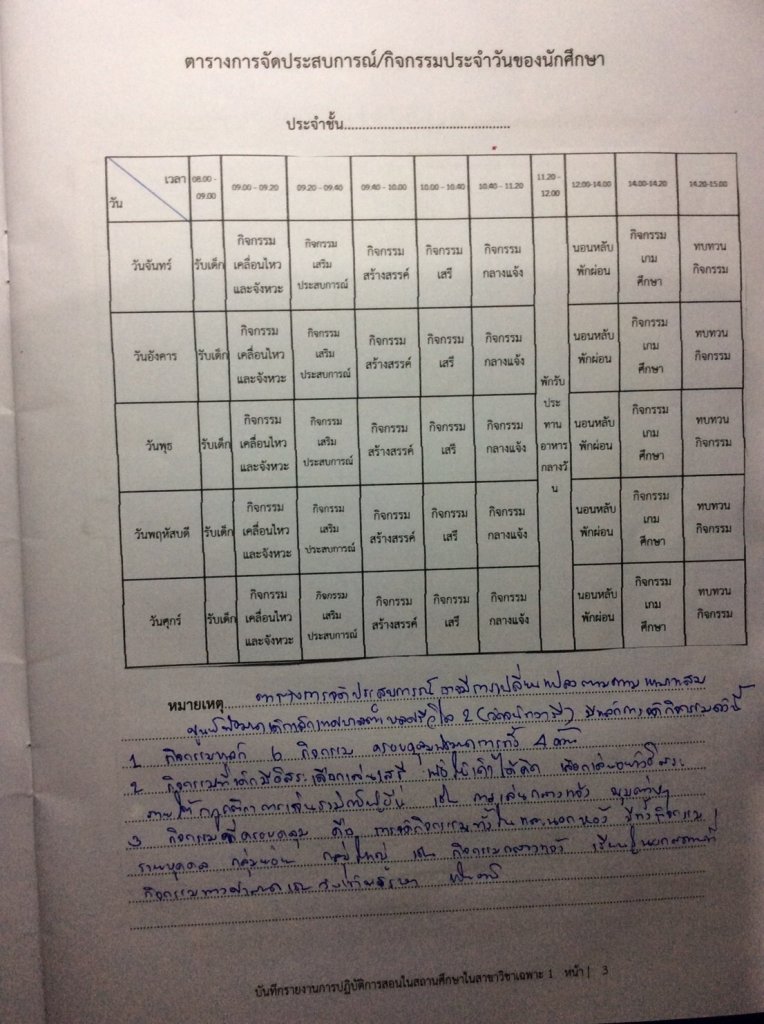 ตารางการจัดประสบการณ์/กิจกรรมประจำวันของนักศึกษา
ประจำชั้น..............................................
เวลา วัน 08.00 - 09.00 09.00 – 09.20 09.20 – 09.40 09.40 – 10.00 10.00 – 10.40 10.40 – 11.20 11.20 - 12.00 12.00-14.00 14.00-14.20 14.20-15.00
วันจันทร์ รับเด็ก กิจกรรมเคลื่อนไหวและจังหวะ กิจกรรมเสริมประสบการณ์ กิจกรรมสร้างสรรค์ กิจกรรมเสรี กิจกรรมกลางแจ้ง พักรับประทานอาหารกลางวัน นอนหลับพักผ่อน กิจกรรมเกมศึกษา ทบทวนกิจกรรม
วันอังคาร รับเด็ก กิจกรรมเคลื่อนไหวและจังหวะ กิจกรรมเสริมประสบการณ์ กิจกรรมสร้างสรรค์ กิจกรรมเสรี กิจกรรมกลางแจ้ง นอนหลับพักผ่อน กิจกรรมเกมศึกษา ทบทวนกิจกรรม
วันพุธ รับเด็ก กิจกรรมเคลื่อนไหวและจังหวะ กิจกรรมเสริมประสบการณ์ กิจกรรมสร้างสรรค์ กิจกรรมเสรี กิจกรรมกลางแจ้ง นอนหลับพักผ่อน กิจกรรมเกมศึกษา ทบทวนกิจกรรม
วันพฤหัสบดี รับเด็ก กิจกรรมเคลื่อนไหวและจังหวะ กิจกรรมเสริมประสบการณ์ กิจกรรมสร้างสรรค์ กิจกรรมเสรี กิจกรรมกลางแจ้ง นอนหลับพักผ่อน กิจกรรมเกมศึกษา ทบทวนกิจกรรม
วันศุกร์ รับเด็ก กิจกรรมเคลื่อนไหวและจังหวะ กิจกรรมเสริมประสบการณ์ กิจกรรมสร้างสรรค์ กิจกรรมเสรี กิจกรรมกลางแจ้ง นอนหลับพักผ่อน กิจกรรมเกมศึกษา ทบทวนกิจกรรม
หมายเหตุ ตารางการจัดประสบการณ์ อาจมีการเปลี่ยนแปลงตามความเหมาะสม
ศูนย์พัฒนาเด็กเล็กเทศบาลตำบล 2 มีหลักการจัดกิจกรรมดังนี้
1. กิจกรรมหลัก 6 กิจกรรม ครอบคลุมพัฒนาการทั้ง 4 ด้าน
2. กิจกรรมที่เด็กมีอิสระเลือกเล่นเสรี เพื่อให้เด็กได้คิด เลือกเล่นอย่างอิสระ
ภายใต้กฎกติกาการเล่นร่วมกับผู้อื่น เช่น การเล่นกลางแจ้ง มุมต่างๆ
3. กิจกรรมที่ครอบคลุม คือ การจัดกิจกรรมทั้งในและนอกห้อง มีทั้งกิจกรรม
รายบุคคล กลุ่มย่อย กลุ่มใหญ่ เช่น กิจกรรมกลางแจ้ง เรียนรู้นอกสถานที่
กิจกรรมทางศาสนา เป็นต้น
บันทึกรายงานการปฏิบัติการสอนในสถานศึกษาในสาขาวิชาเฉพาะ 1 หน้า | 3